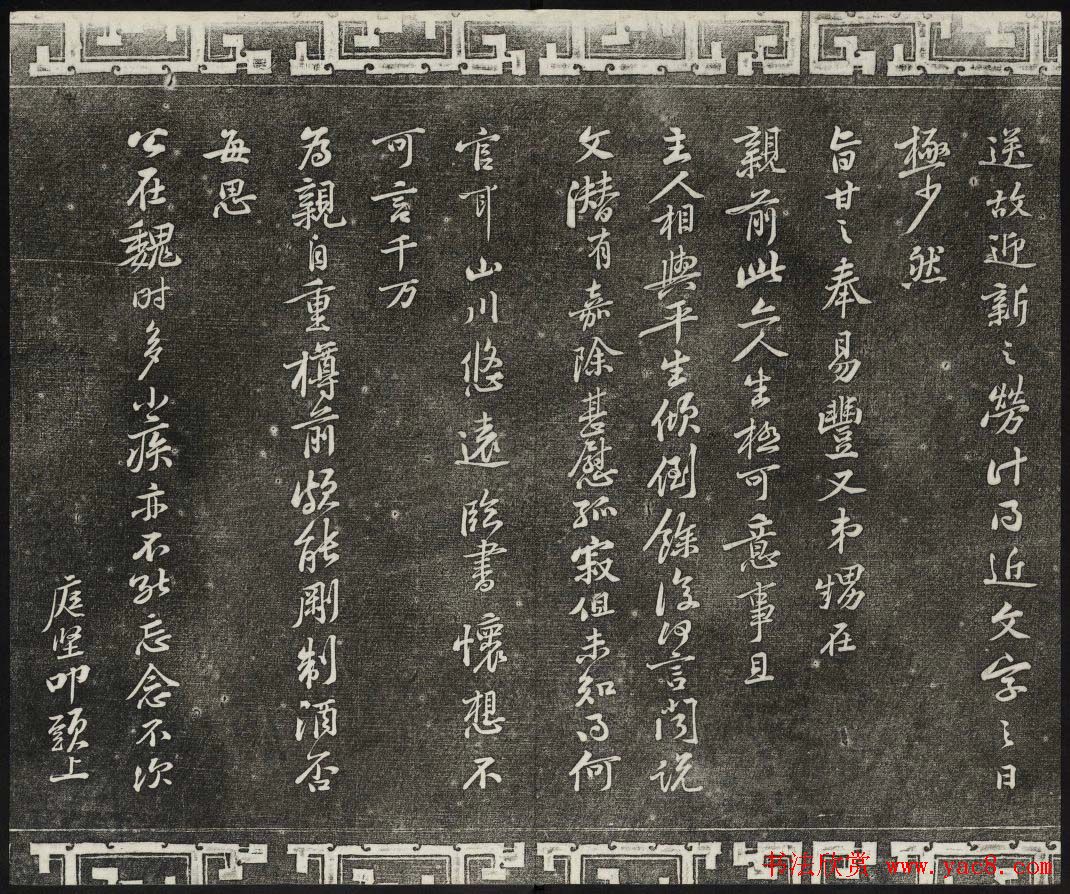 送故迎新之勞計得近文字之日
極少然
旨甘之奉易豐又弟甥在
親前此亦人生極可意事且
主人相與平生傾倒餘復何言聞說
文潛有嘉除甚慰孤寂但未知得何
官耳山川悠遠臨書懷想不
可言千万
為親自重樽前頗能剛制酒否
每思
公在魏時多小疾亦不能忘念不次
庭堅叩頭上
书法欣赏 www.yac8.com